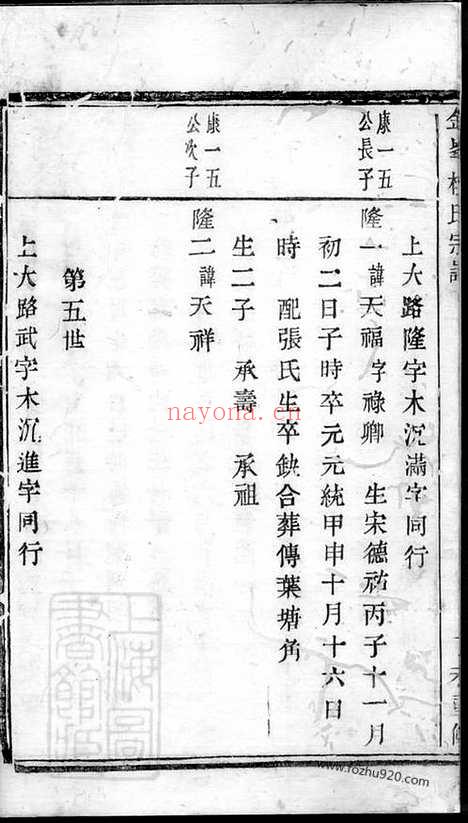 上大路隆字木沉滿字同行
康一五
公長子
隆一諱天福字祿卿　生宋德祐丙子十一月
初二日子時卒元元統甲申十月十六日
時　配張氏生卒缺合葬傳葉塘角
生二子　承壽　承祖
康一五
公次子
隆二諱天祥
第五世
上大路武字木沉進字同行
nayona.cn
上海圖書館藏
www.fozhu920.com